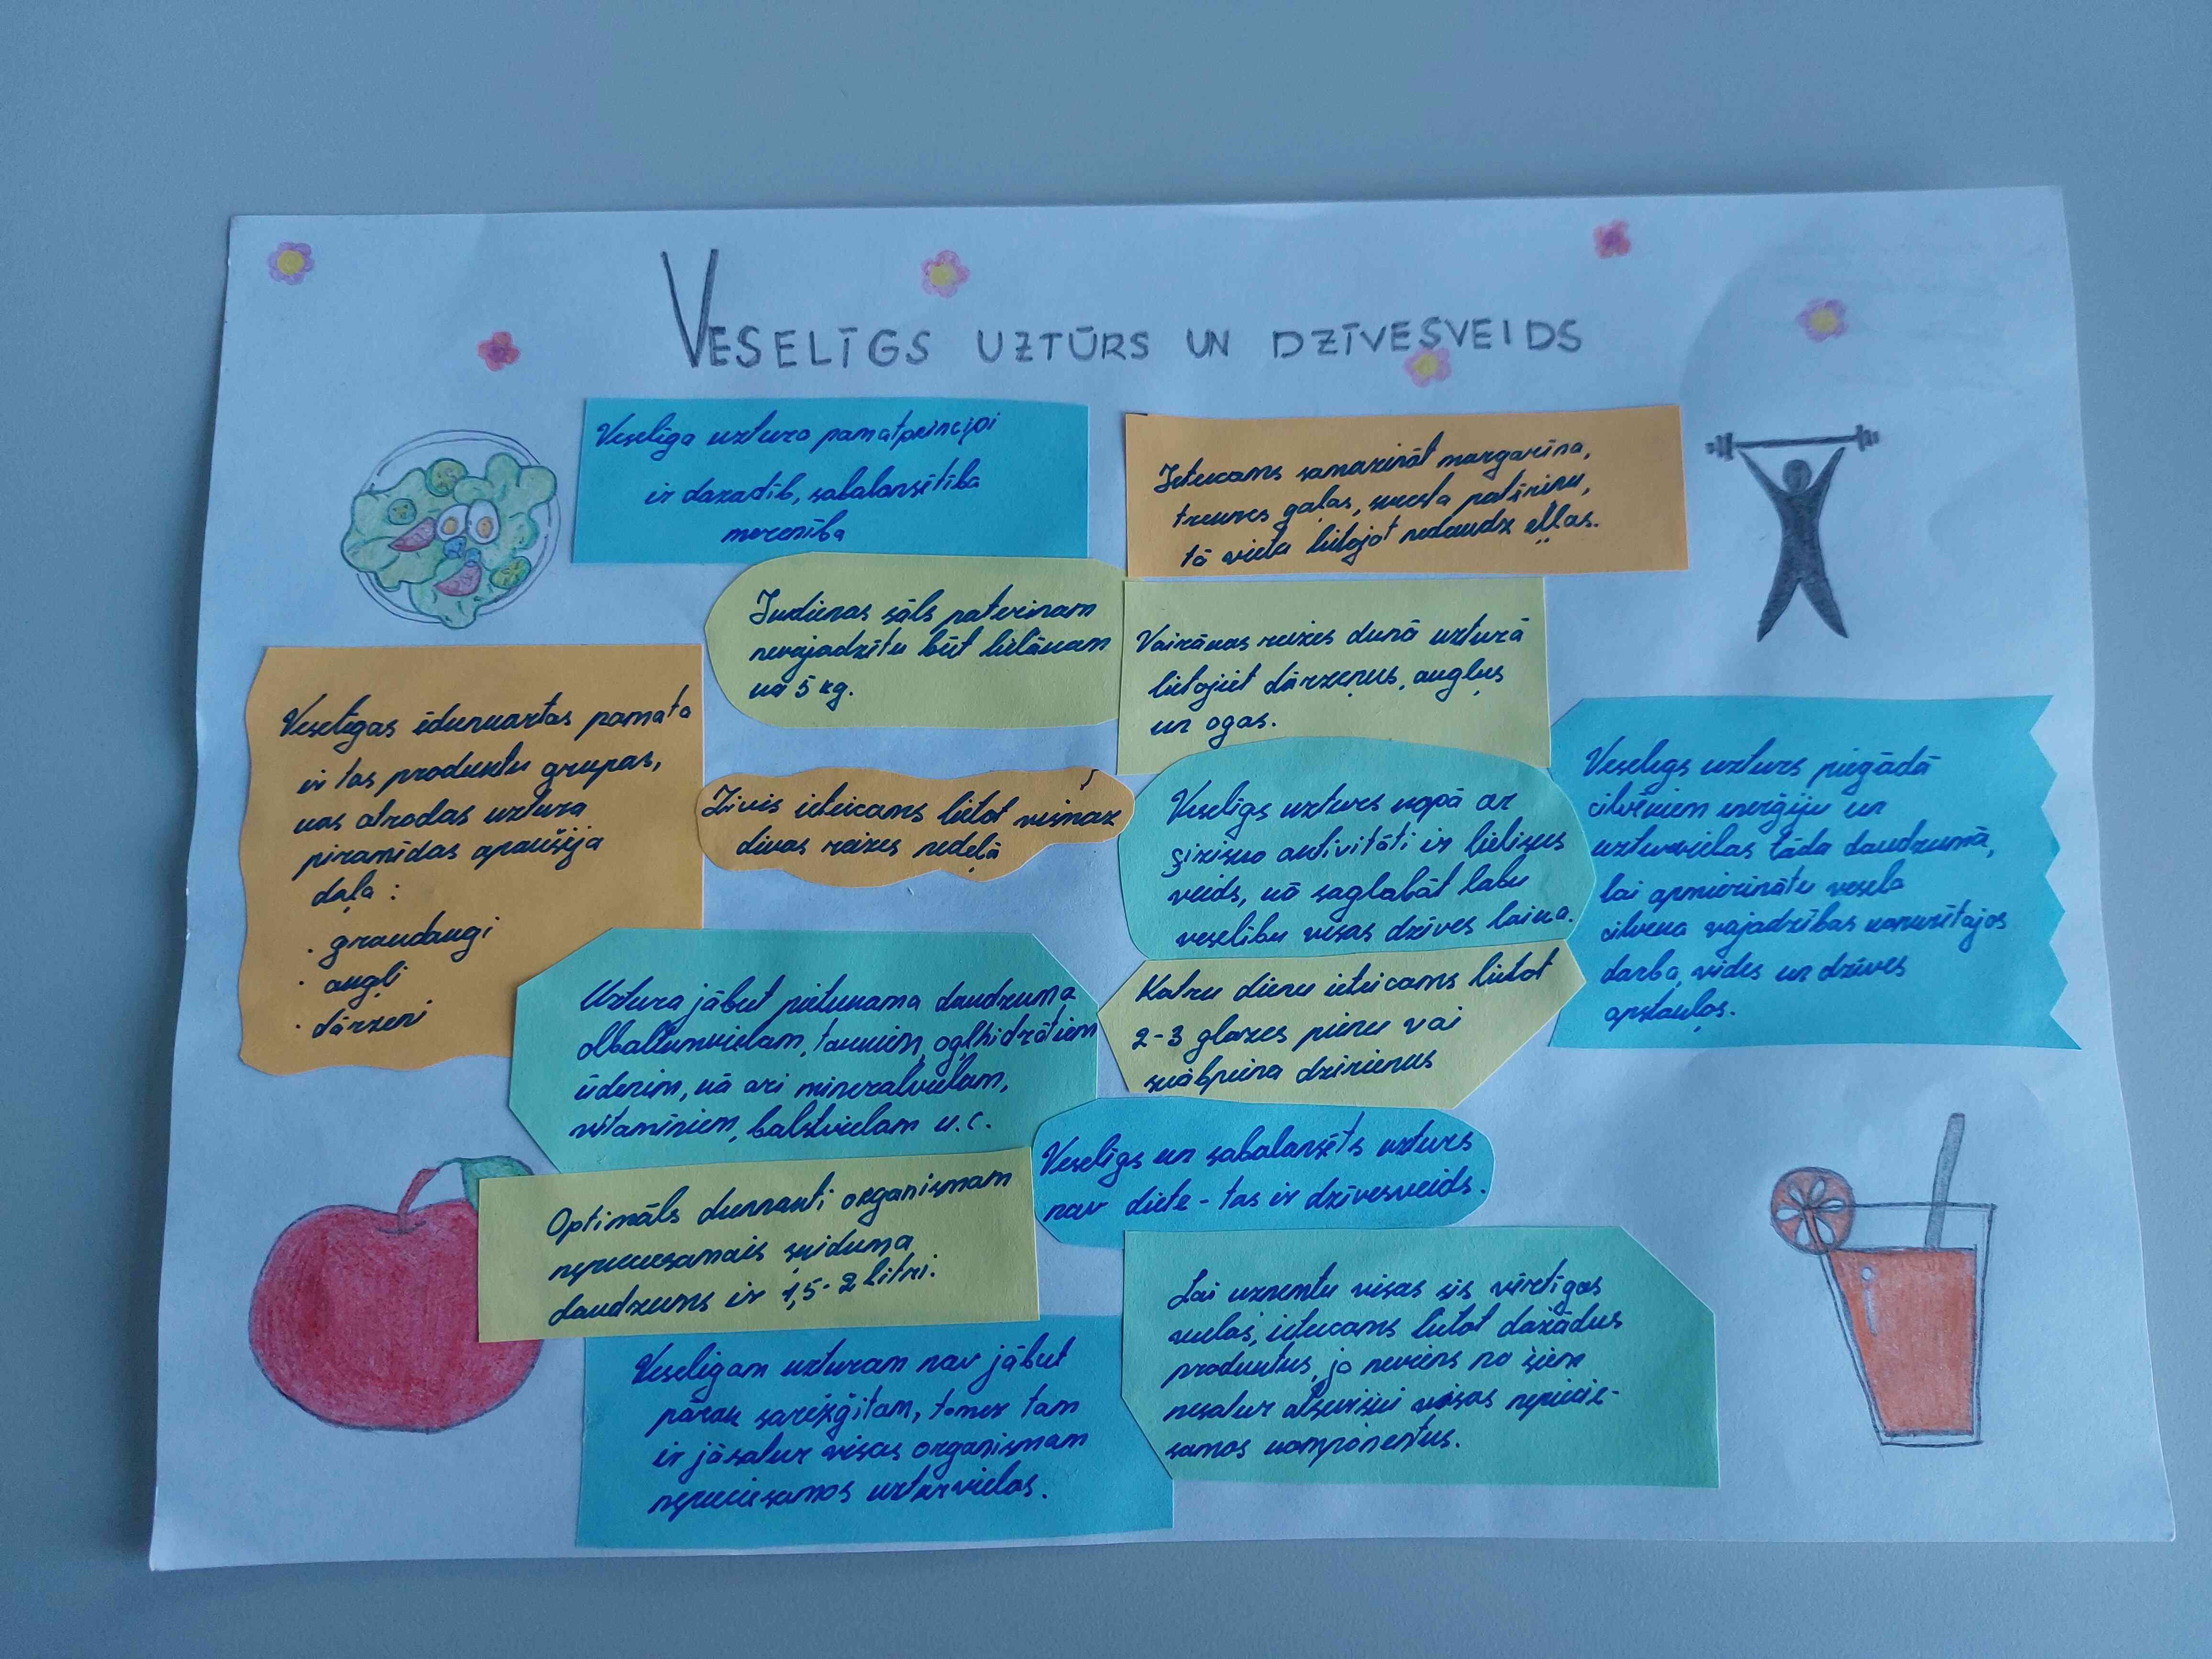 VESELĪGS UZTŪRS UN DZĪVESVEIDS
Veselīga uztura pamatprincipi
ir dazadīb, sabalansētība
merenība
Ieteicams samazināt margarīna,
treknes gaļas, sviesta patēriņu,
tā vietu lietojot nedaudz eļļas.
Ikdienas sāls paterinam
nevajadzētu būt lielākam
kā 5 kg.
Vairākas reizes dienā uzturā
lietojiet dārzeņus, augļus
un ogas.
Veselīgas ēdienkartas pamata
ir tas produktu grupas,
kas atrodas uztura
piramīdas apakšēja
daļa:
· graudaugi
· augļi
· dārzeni
Zivis ieteicams lietot vismaz
divas reizes nedeļā
Veselīgs uzturs kopā ar
fizisko aktivitāti ir lielisks
veids, kā saglabāt labu
veselību visas dzīves laika.
Veselīgs uzturs piegādā
cilvēkiem enerģiju un
uzturvielas tāda daudzumā,
lai apmierinātu vesela
cilveka vajadzības konkrētajos
darba, vides un dzīves
apstakļos.
Uztura jābut pietiekama daudzuma
olbaltumvielam, taukiem, ogļhidrātiem
ūdenim, kā ari mineralvielam,
vitamīniem, balstvielam u.c.
Katru dienu ieteicams lietot
2-3 glazes pienu vai
skābpiena dzirienus
Veselīgs un sabalansēts uzturs
nav diēte - tas ir dzīvesveids.
Optimāls diennakti organismam
nepieciesamais šķiduma
daudzums ir 1,5-2 litri.
Lai uznemtu visas sis vērtīgas
vielas, ieteicams lietot dažādus
produktus, jo neviens no šiem
nesatur atsevišķi visas nepiecie-
samos komponentus.
Veseligam uzturam nav jābut
pārak sarežģitam, tomer tam
ir jāsatur visas organismam
nepieciesamas uzturvielas.